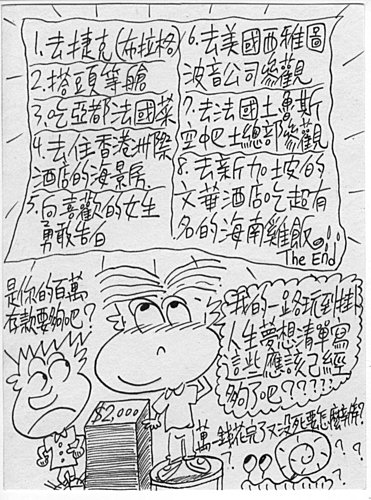 1.去捷克(布拉格)
2.搭頭等艙
3.吃亞都法國菜
4.去住香港洲際
酒店的海景房
5.向喜歡的女生
勇敢告白
6.去美國西雅圖
波音公司參觀
7.去法國土魯斯
空中巴士總部參觀
8.去新加坡的
文華酒店吃超有
名的海南雞飯。!!
The End
是你的百萬
存款要夠吧?
我的一路玩到掛
人生夢想清單寫
這些應該已經
夠了吧?????
$2000
萬一錢花完了又沒死要怎麼辦啊?
? ? ?